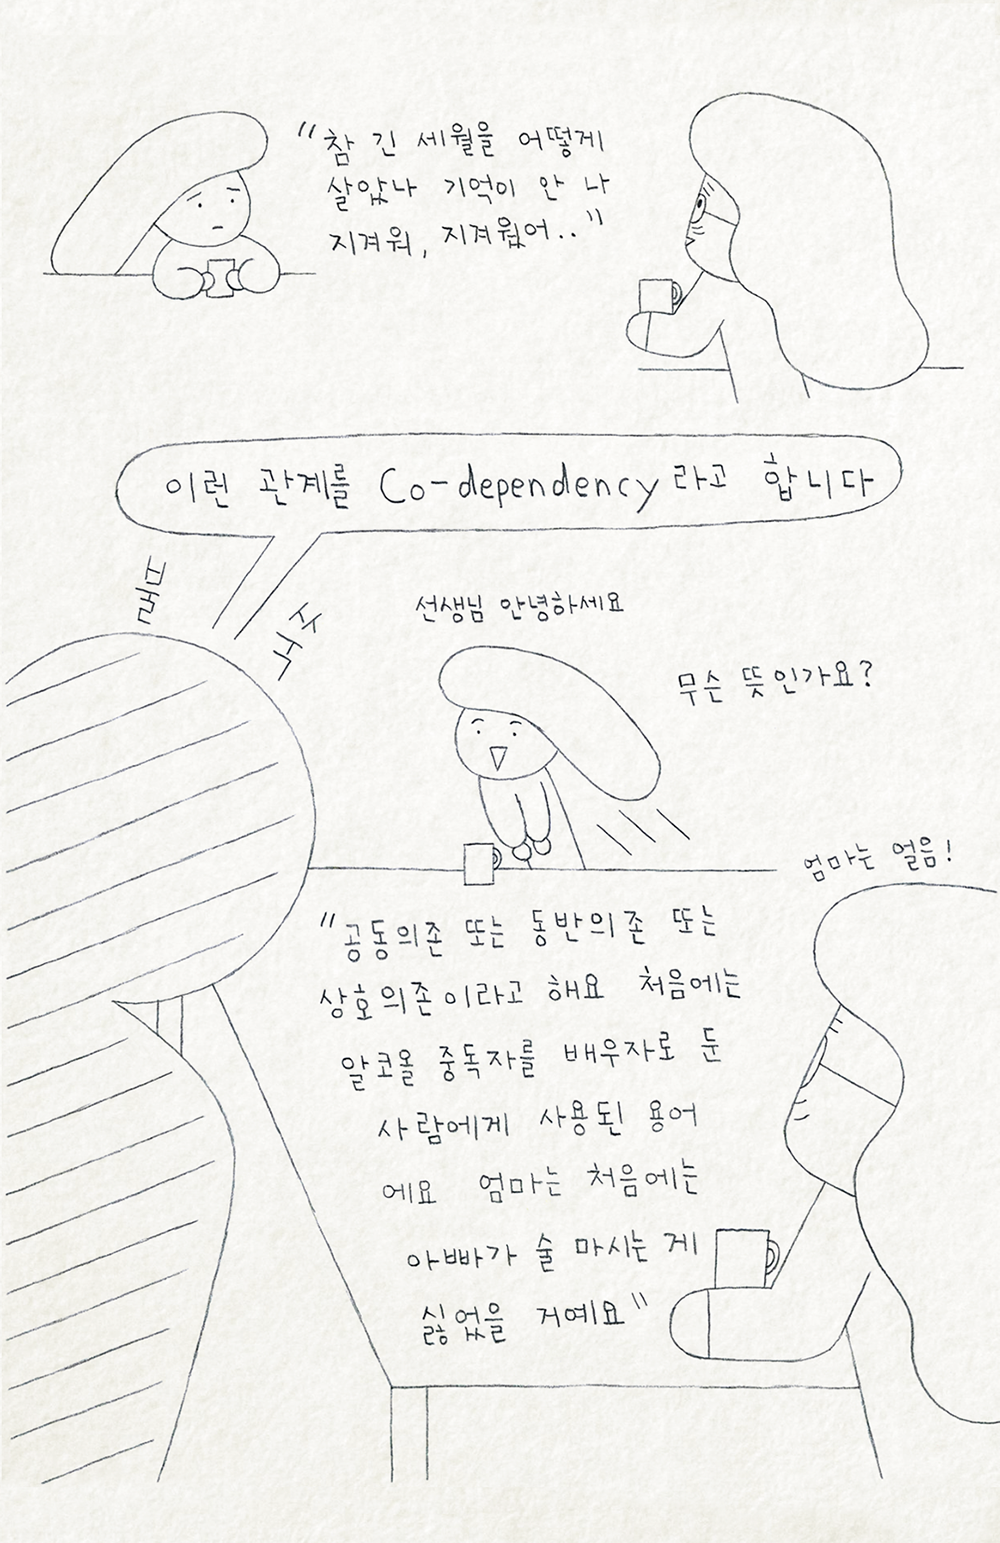 "참 긴 세월을 어떻게
살았나 기억이 안 나
지겨워, 지겨웠어.."
이런 관계를 Co-dependency라고 합니다
불
쑥
선생님 안녕하세요
무슨 뜻인가요?
엄마는 얼음!
"공동의존 또는 동반의존 또는
상호의존이라고 해요 처음에는
알코올 중독자를 배우자로 둔
사람에게 사용된 용어
에요 엄마는 처음에는
아빠가 술 마시는 게
싫었을 거예요"